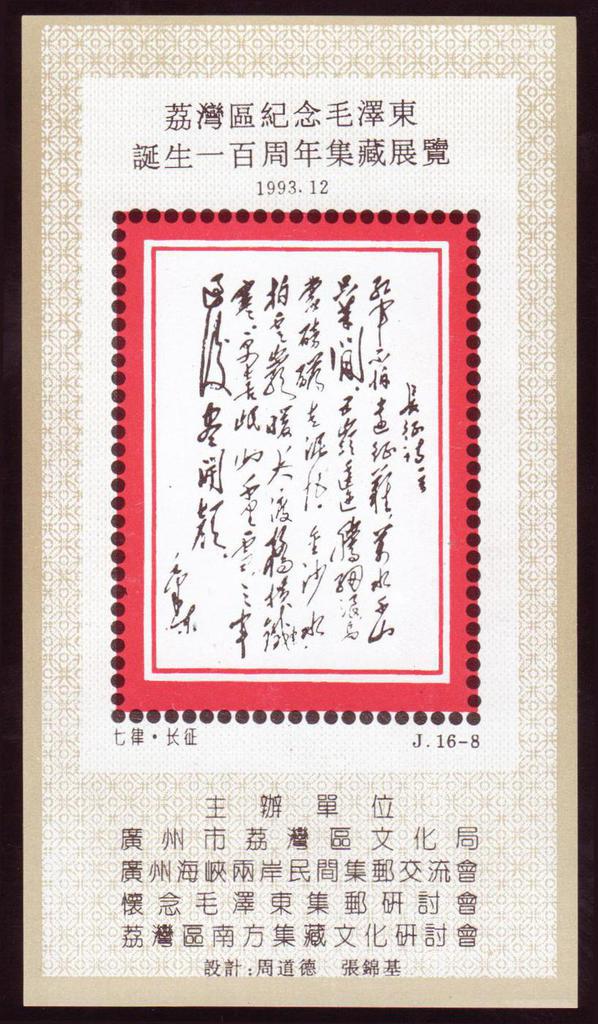 荔灣區紀念毛澤東
誕生一百周年集藏展覽
1993.12
长征诗一首
红军不怕远征難，萬水千山
只等闲，五嶺逶迤騰細浪，烏
蒙磅礴走泥丸，金沙水
拍雲崖暖，大渡橋横鐵索
寒，更喜岷山千里雪，三军
过後尽開颜。
澤東
七律·长征
J.16-8
主辦單位
廣州市荔灣區文化局
廣州海峽兩岸民間集郵交流會
懷念毛澤東集郵研討會
荔灣區南方集藏文化研討會
設計:周道德 張錦基